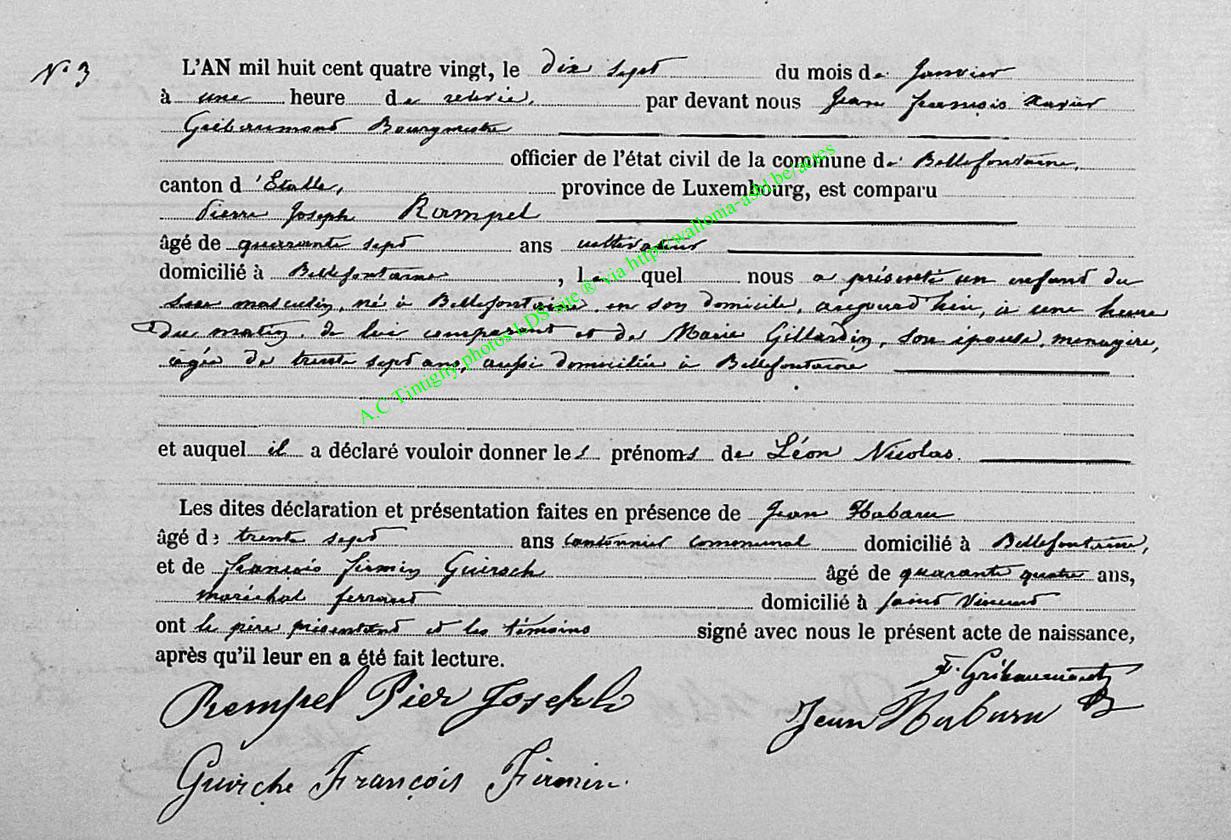 N° 3
L'AN mil huit cent quatre vingt, le dix sept du mois de Janvier
à une heure de relevée, par devant nous Jean François Xavier
Gribaumont Bourgmestre
officier de l'état civil de la commune de Bellefontaine,
canton d'Etalle, province de Luxembourg, est comparu
Pierre Joseph Rampel
âgé de quarante sept ans cultivateur
domicilié à Bellefontaine, lequel nous a présenté un enfant du
sexe masculin, né à Bellefontaine, en son domicile, aujourd'hui, à une heure
du matin, de lui comparant et de Marie Gillardin, son épouse, menagère,
agée de trente sept ans, aussi domiciliée à Bellefontaine
et auquel il a déclaré vouloir donner les prénoms de Léon Nicolas.
Les dites déclaration et présentation faites en présence de Jean Habaru
âgé de trente sept ans cantonnier communal domicilié à Bellefontaine,
et de François Firmin Guirsch âgé de quarante quatre ans,
maréchal ferrant domicilié à Saint Vincent
ont le père présentant et les témoins signé avec nous le présent acte de naissance,
après qu'il leur en a été fait lecture.
F. Gribaumont
Rempel Pier Joseph
Jean Habaru
Guirche François Firmin
A.C Tintigny photos LDS site ® via http://wallonia-asbl.be/actes